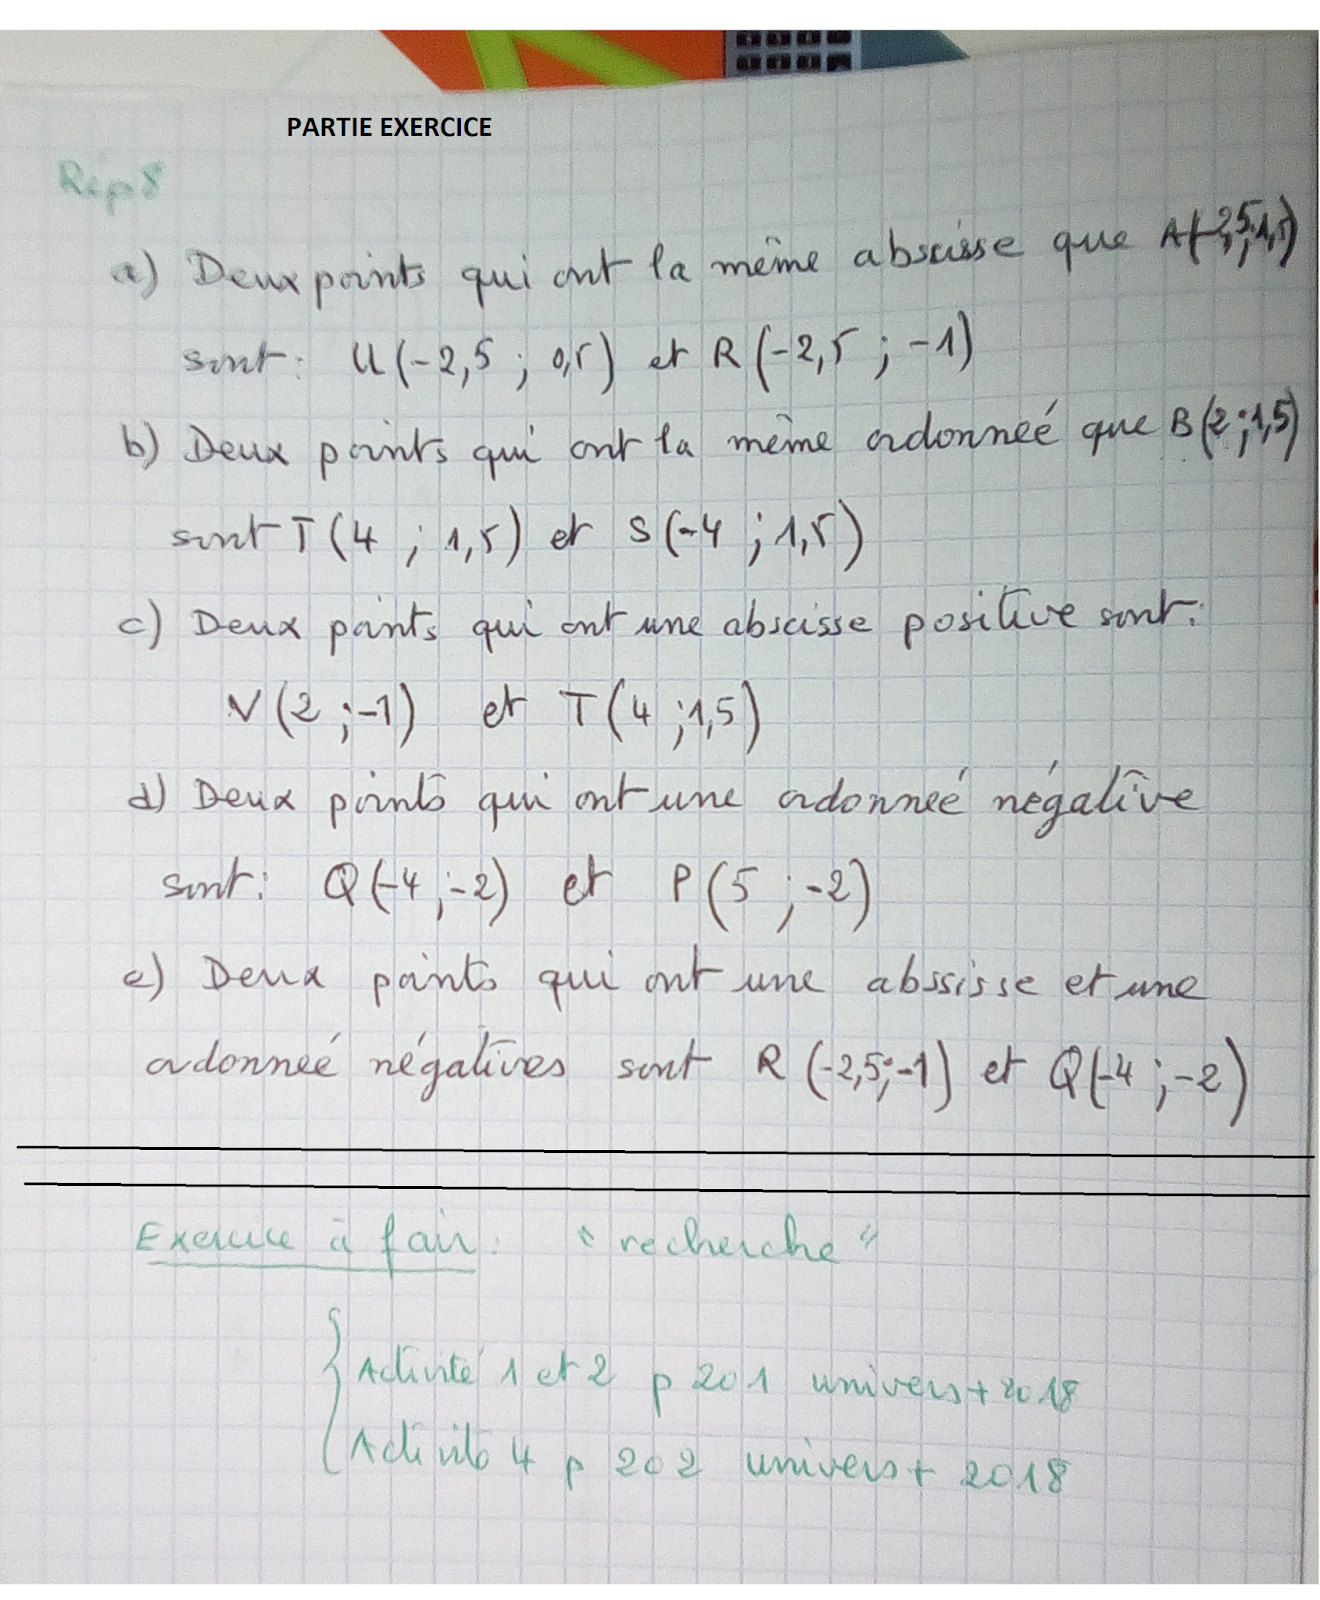 PARTIE EXERCICE
Rép 8
a) Deux points qui ont la même abscisse que A(-2,5;1,5)
sont: U(-2,5 ; 0,5) et R(-2,5 ; -1)
b) Deux points qui ont la même ordonneé que B(2;1,5)
sont T(4 ; 1,5) et S(-4 ; 1,5)
c) Deux points qui ont une abscisse positive sont:
V(2 ;-1) et T(4 ;1,5)
d) Deux points qui ont une ordonneé négative
sont: Q(-4 ;-2) et P(5 ; -2)
e) Deux points qui ont une abssisse et une
ordonneé négatives sont R(-2,5;-1) et Q(-4 ; -2)
Exercice à fair: "recherche"
Activité 1 et 2 p 201 univers + 2018
Activité 4 p 202 univers + 2018